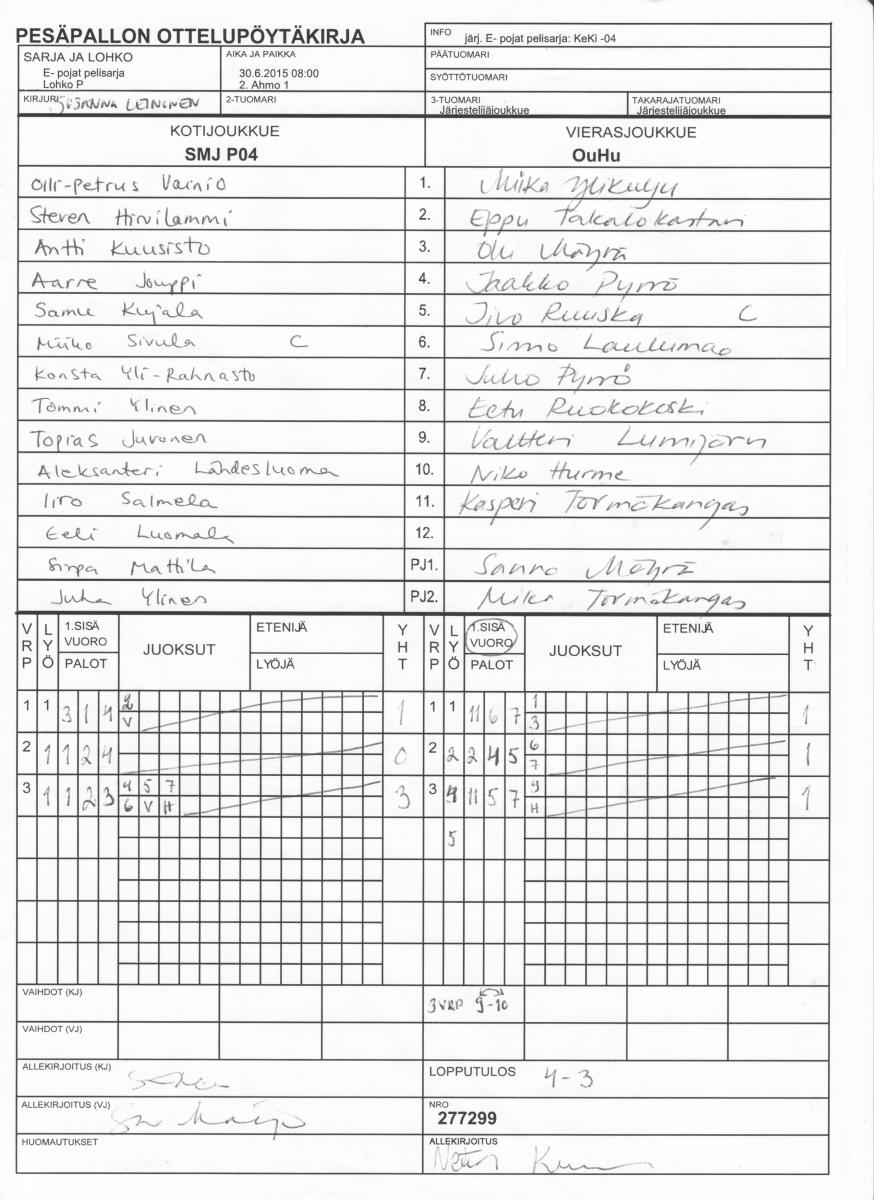 PESÄPALLON OTTELUPÖYTÄKIRJA
INFO järj. E- pojat pelisarja: KeKi -04
SARJA JA LOHKO
E- pojat pelisarja
Lohko P
AIKA JA PAIKKA
30.6.2015 08:00
2. Ahmo 1
PÄÄTUOMARI
SYÖTTÖTUOMARI
KIRJURI SUSANNA LEINONEN
2-TUOMARI
3-TUOMARI
Järjestelijäjoukkue
TAKARAJATUOMARI
Järjestelijäjoukkue
KOTIJOUKKUE VIERASJOUKKUE
SMJ P04 OuHu
Olli-Petrus Vainio 1. Miika Ylikulju
Steven Hirvilammi 2. Eppu Takalokastari
Antti Kuusisto 3. Olli Mäyrä
Aarre Jouppi 4. Jaakko Pyrrö
Samu Kujala 5. Iivo Ruuska C
Miiko Sivula C 6. Simo Laulumaa
Konsta Yli-Rahnasto 7. Juho Pyrrö
Tommi Ylinen 8. Eetu Ruokokoski
Topias Juronen 9. Valtteri Lumijärvi
Aleksanteri Lähdesluoma 10. Niko Hurme
Iiro Salmela 11. Kasperi Törmäkangas
Eeli Luomala 12.
Sirpa Mattila PJ1. Sanna Mäyrä
Juha Ylinen PJ2. Mika Törmäkangas
VRP LYÖ 1.SISÄ VUORO PALOT JUOKSUT ETENIJÄ LYÖJÄ YHT VRP LYÖ 1.SISÄ VUORO PALOT JUOKSUT ETENIJÄ LYÖJÄ YHT
1 1 3 1 4 2 V 1 1 1 11 6 7 1 3 1
2 1 1 2 4 0 2 2 2 4 5 6 7 1
3 1 1 2 3 4 5 7 6 V H 3 3 4 11 5 7 9 H 1
5
VAIHDOT (KJ) 3VRP 9-10
VAIHDOT (VJ)
ALLEKIRJOITUS (KJ) LOPPUTULOS 4-3
ALLEKIRJOITUS (VJ) NRO
277299
HUOMAUTUKSET ALLEKIRJOITUS